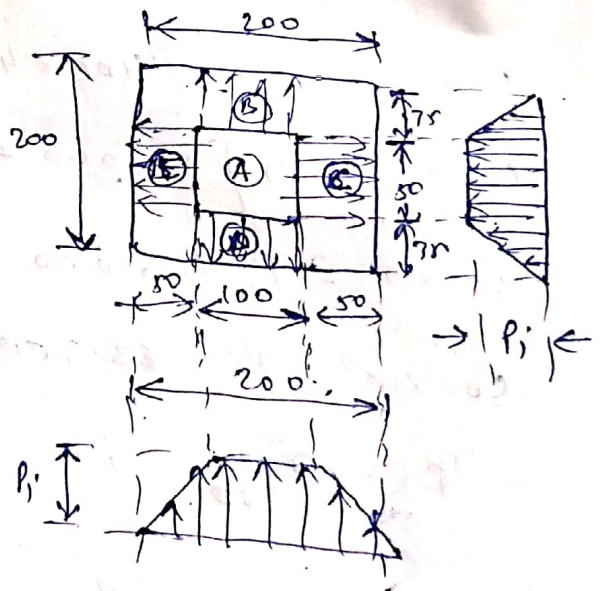 200
200
B
75
A
50
75
50
100
50
Pi
200
Pi